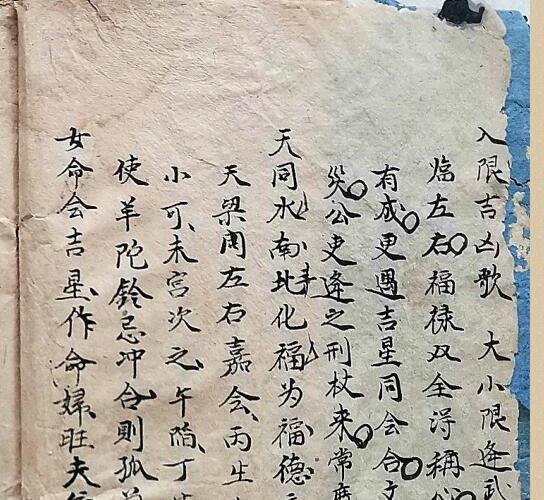 入限吉凶歌 大小限逢武
临左右福禄双全得称心
有成更遇吉星同会合文
災公吏逢之刑杖来常庶
天同水南北化福为福德
天梁同左右嘉会丙生
小可未宫次之午陷丁
使羊陀铃忌冲合則孤单
女命会吉星作命婦旺夫